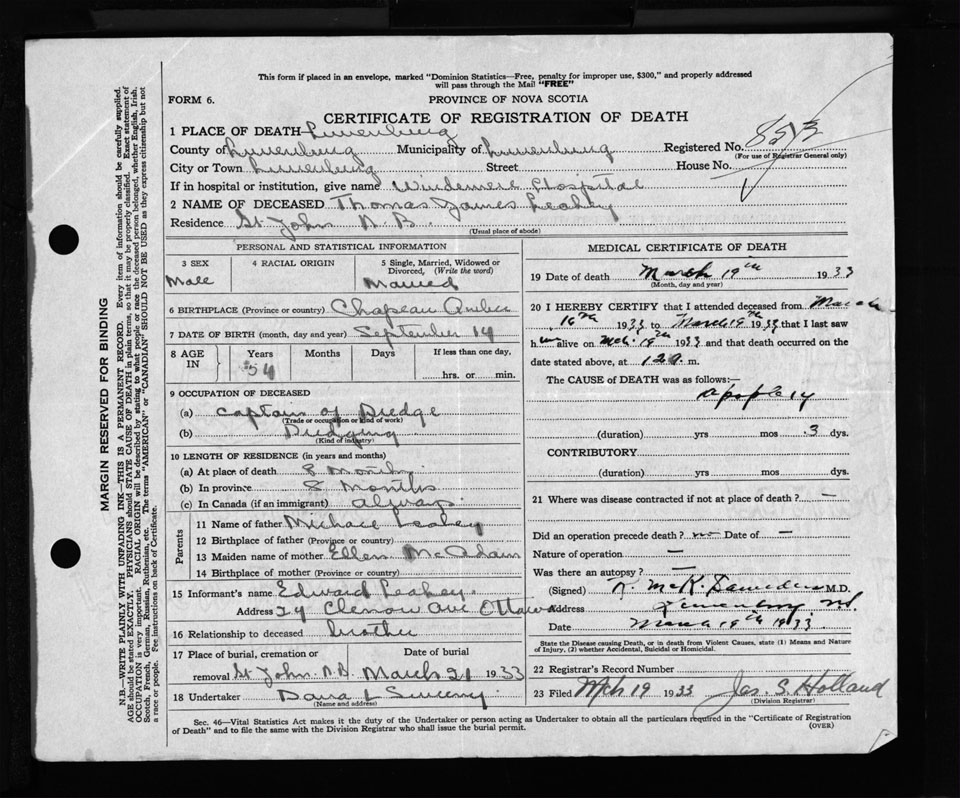 This form if placed in an envelope, marked "Dominion Statistics—Free, penalty for improper use, $300," and properly addressed
will pass through the Mail "FREE"
FORM 6.
PROVINCE OF NOVA SCOTIA
CERTIFICATE OF REGISTRATION OF DEATH
1 PLACE OF DEATH Lunenburg
County of Lunenburg Municipality of Lunenburg Registered No.
(For use of Registrar General only)
City or Town Lunenburg Street House No.
If in hospital or institution, give name Windemere Hospital
2 NAME OF DECEASED Thomas James Leahey
Residence St. John N. B.
(Usual place of abode)
PERSONAL AND STATISTICAL INFORMATION
3 SEX 4 RACIAL ORIGIN 5 Single, Married, Widowed or
Divorced, (Write the word)
Male Married
6 BIRTHPLACE (Province or country) Chapeau Quebec
7 DATE OF BIRTH (month, day and year) September 14
8 AGE IN Years Months Days If less than one day,
54 hrs. or min.
9 OCCUPATION OF DECEASED
(a) Captain of Dredge
(Trade or occupation or kind of work)
(b) Dredging
(Kind of industry)
10 LENGTH OF RESIDENCE (in years and months)
(a) At place of death 8 Months
(b) In province 8 Months
(c) In Canada (if an immigrant) always
Parents
11 Name of father Michael Leahey
12 Birthplace of father (Province or country)
13 Maiden name of mother Ellen McAdam
14 Birthplace of mother (Province or country)
15 Informant's name Edward Leahey
Address 24 Clemow Ave Ottawa
16 Relationship to deceased brother
17 Place of burial, cremation or Date of burial
removal St. John N.B. March 21 1933
18 Undertaker Dana L Sweeny
(Name and address)
MEDICAL CERTIFICATE OF DEATH
19 Date of death March 19th 1933
(Month, day and year)
20 I HEREBY CERTIFY that I attended deceased from March
16th 1933 to March 19th 1933 that I last saw
him alive on Mch. 19th 1933 and that death occurred on the
date stated above, at m.
The CAUSE OF DEATH was as follows:—
apoplexy
(duration) yrs mos 3 dys.
CONTRIBUTORY
(duration) yrs mos dys.
21 Where was disease contracted if not at place of death? —
Did an operation precede death? no Date of —
Nature of operation —
Was there an autopsy? —
(Signed) M.D.
Address Lunenburg N.S.
Date March 19th 1933
State the Disease causing Death, or in death from Violent Causes, state (1) Means and Nature
of Injury, (2) whether Accidental, Suicidal or Homicidal.
22 Registrar's Record Number
23 Filed Mch 19 1933 Jas. S. Holland
(Division Registrar)
Sec. 46—Vital Statistics Act makes it the duty of the Undertaker or person acting as Undertaker to obtain all the particulars required in the "Certificate of Registration
of Death" and to file the same with the Division Registrar who shall issue the burial permit.
(OVER)
MARGIN RESERVED FOR BINDING
N.B.—WRITE PLAINLY WITH UNFADING INK—THIS IS A PERMANENT RECORD. Every item of information should be carefully supplied.
AGE should be stated EXACTLY. PHYSICIANS should STATE CAUSE OF DEATH in plain terms, so that it may be properly classified. Exact statement of
OCCUPATION is very important. RACIAL ORIGIN will be described by stating to what people or race the deceased person belonged, whether English, Irish,
Scotch, French, German, Russian, Ruthenian, etc. The terms "AMERICAN" or "CANADIAN" SHOULD NOT BE USED as they express citizenship but not
a race or people. Fee instructions on back of Certificate.